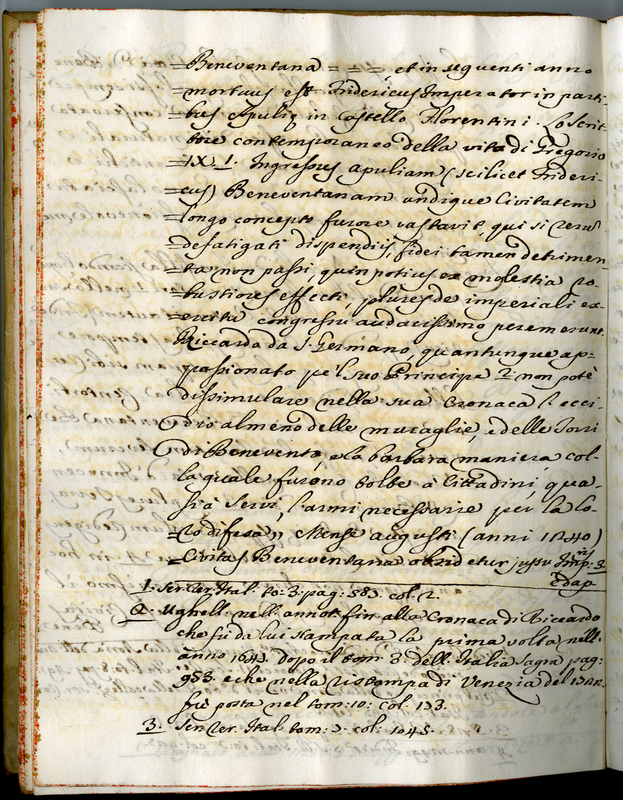 =Beneventana = = = et in sequenti anno
=mortuus est Fridericus Imperator in parti=
=bus Apulię in Castello Florentini. Lo Scrit=
tore contemporaneo della vita di Gregorio
=IX 1. Ingressus Apuliam (scilicet Frideri=
=cus) Beneventanam undique Civitatem
=longo concepto furore vastavit, qui si rerum
=defatigati dispendijs, fidei tamen detrimen=
=ta non passi, quin potius ex molestia ro=
=bustiores effecti, plures de imperiali ex=
=ercitu congressu audacissimo peremerunt
Riccardo da S. Germano, quantunque ap=
passionato pe'l suo Principe 2. non potè
dissimulare nella sua Cronaca l'ecci=
dio almeno delle muraglie, e delle Torri
di Benevento, e la barbara maniera col=
la quale furono tolte a Cittadini, qua=
si à Servi, l'armi necessarie per la lo=
ro difesa,, Mense augusti (anni 1240)
=Civitas Beneventana obsidetur jussu Imp:ris 3.
edap
1. Ser: Rer. Ital. to: 3: pag: 583. col. 2.
2. Ughell: nell: annot. fin alla Cronaca di Riccardo
che fù da lui stampata la prima volta nell'
anno 1643. dopo il tom: 3. dell'Italia Sagra pag:
953. e che nella ristampa di Venezia del 1722.
fù posta nel tom: 10: col: 133.
3. Ser: Rer. Ital. tom: 7. col: 1045.